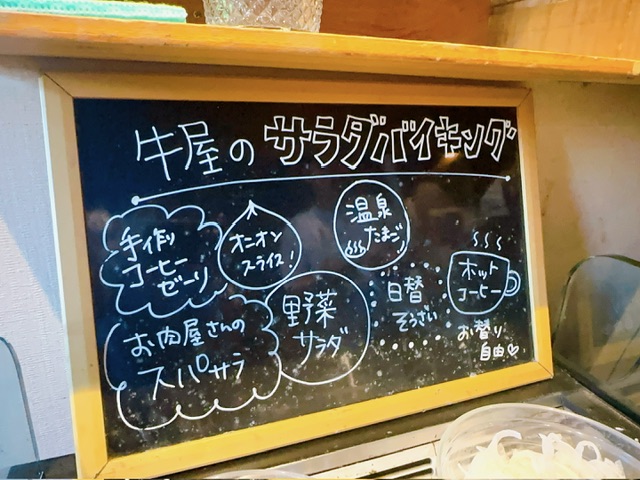 牛屋のサラダバイキング
手作り
コーヒー
ゼーリ
オニオン
スライス!
温泉
たまご
お肉屋さんの
スパサラ
野菜
サラダ
日替
そうざい
ホット
コーヒー
お替り
自由♡